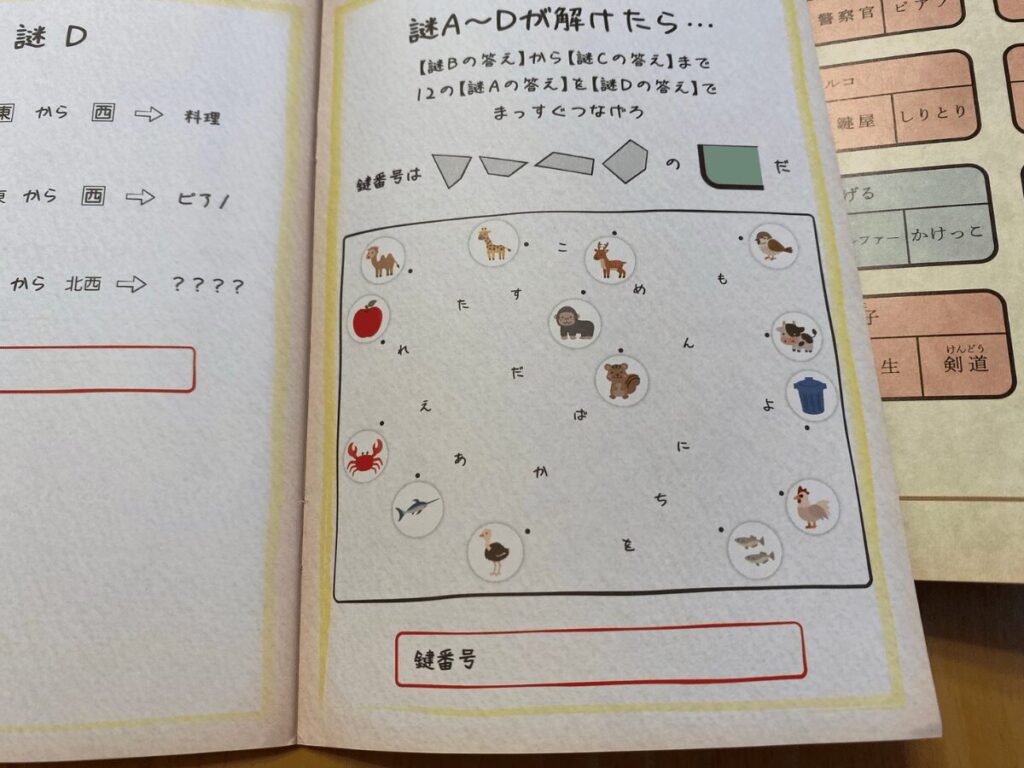 謎 D
東 から 西 ⇨ 料理
から 西 ⇨ ピアノ
から 北西 ⇨ ????
謎A〜Dが解けたら…
【謎Bの答え】から【謎Cの答え】まで
12の【謎Aの答え】を【謎Dの答え】で
まっすぐつなげろ
鍵番号は の だ
こ
も
た
す
め
れ
ん
だ
え
ば
よ
あ
か
に
ち
を
鍵番号
警察官
ピアノ
ルコ
鍵屋
しりとり
げる
ファー
かけっこ
子
生
けんどう
剣道